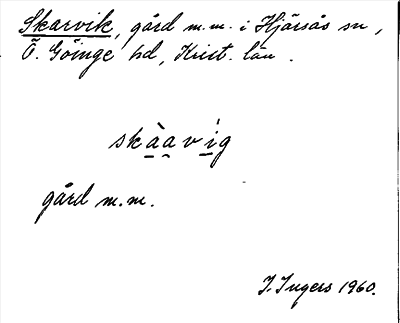 Skarvik, gård m.m. i Hjärsås sn,
Ö. Göinge hd, Krist. län.
skàavig
gård m.m.
I. Ingers 1960.